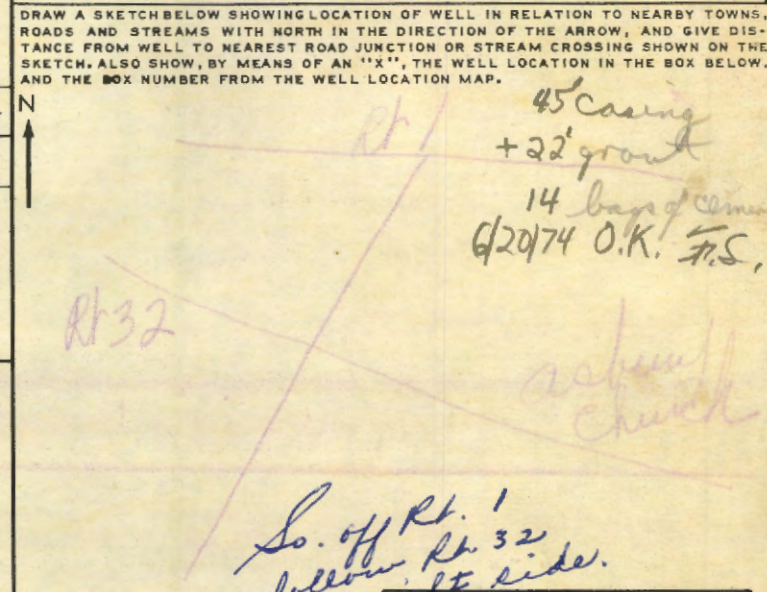 DRAW A SKETCH BELOW SHOWING LOCATION OF WELL IN RELATION TO NEARBY TOWNS,
ROADS AND STREAMS WITH NORTH IN THE DIRECTION OF THE ARROW, AND GIVE DIS-
TANCE FROM WELL TO NEAREST ROAD JUNCTION OR STREAM CROSSING SHOWN ON THE
SKETCH. ALSO SHOW, BY MEANS OF AN "X", THE WELL LOCATION IN THE BOX BELOW.
AND THE BOX NUMBER FROM THE WELL LOCATION MAP.
N
45' Casing
+ 22' grout
14 bags of
6/20/74 O.K. F.S.
Rt 1
Rt 32
Church
So. off Rt. 1
follow Rt. 32
side.